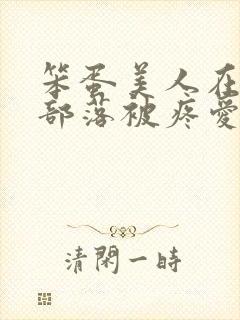 笨蛋美人在
部落被疼愛
清閑一時